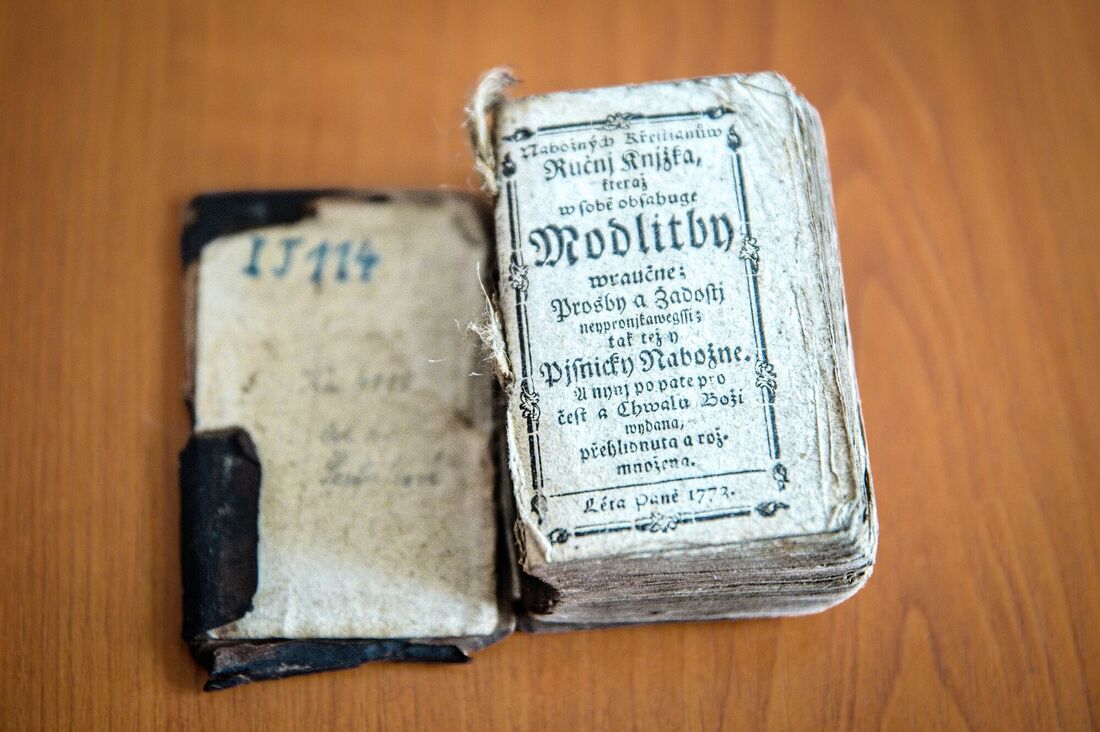 IJ 114
Nabožných Křeſtianůw
Ručnj Knjžka,
kteraž
w ſobě obſahuge
Modlitby
wraučne;
Prosby a Žadoſtj
neypronjkawegſſi;
tak též y
Pjſnicky Nabožne.
A nynj po pate pro
čeſt a Chwalu Boži
wydana,
přehlidnuta a roz-
množena.
Léta Páně 1773.